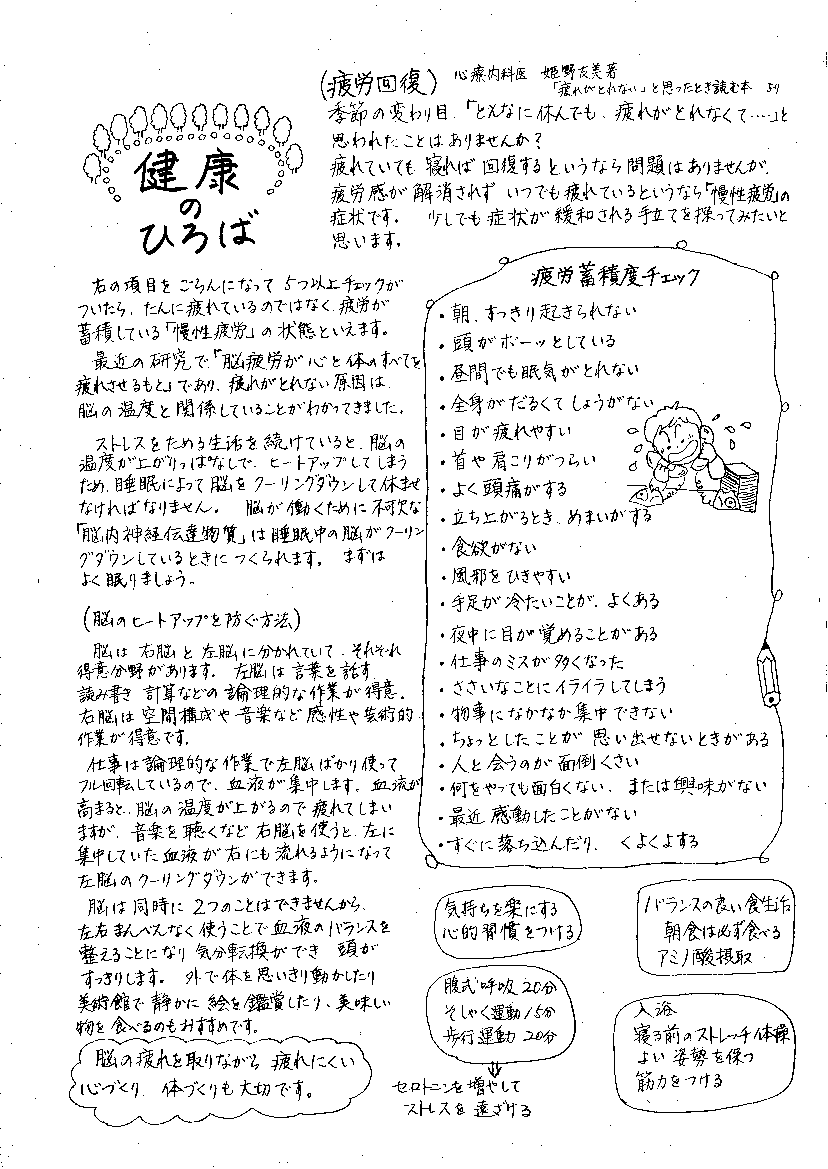 健康
の
ひろば
(疲労回復) 心療内科医 姫野友美著
「疲れがとれない」と思ったとき読む本 より
季節の変わり目、「どんなに休んでも、疲れがとれなくて…」と
思われたことはありませんか?
疲れていても 寝れば 回復するというなら問題はありませんが、
疲労感が 解消されず いつでも疲れているというなら「慢性疲労」の
症状です。 少しでも症状が 緩和される手立てを探ってみたいと
思います。
右の項目を ごらんになって 5つ以上チェックが
ついたら、たんに疲れているのではなく、疲労が
蓄積している「慢性疲労」の状態といえます。
最近の研究で、「脳疲労が心と体のすべてを
疲れさせるもと」であり、疲れがとれない原因は、
脳の温度と関係していることがわかってきました。
ストレスをためる生活を続けていると、脳の
温度が上がりっぱなしで、ヒートアップしてしまう
ため、睡眠によって脳をクーリングダウンして休ませ
なければなりません。 脳が働くために不可欠な
「脳内神経伝達物質」は睡眠中の脳がクーリン
グダウンしているときにつくられます。 まずは
よく眠りましょう。
(脳のヒートアップを防ぐ方法)
脳は 右脳と 左脳に分かれていて、それぞれ
得意分野があります。 左脳は 言葉を話す
読み書き 計算などの論理的な作業が得意。
右脳は 空間構成や音楽など 感性や芸術的
作業が得意です。
仕事は論理的な作業で左脳ばかり使って
フル回転しているので、血液が集中します。血流が
高まると、脳の温度が上がるので疲れてしまい
ますが、音楽を聴くなど右脳を使うと、左に
集中していた血液が右にも流れるようになって
左脳のクーリングダウンができます。
脳は同時に 2つのことはできませんから、
左右まんべんなく使うことで血液のバランスを
整えることになり 気分転換ができ 頭が
すっきりします。 外で体を思いきり動かしたり
美術館で静かに 絵を鑑賞したり、美味しい
物を食べるのもおすすめです。
脳の疲れを取りながら 疲れにくい
心づくり 体づくりも大切です。
疲労蓄積度チェック
・朝、すっきり起きられない
・頭がボーッとしている
・昼間でも眠気がとれない
・全身がだるくてしょうがない
・目が疲れやすい
・首や肩こりがつらい
・よく頭痛がする
・立ち上がるとき、めまいがする
・食欲がない
・風邪をひきやすい
・手足が冷たいことが、よくある
・夜中に目が覚めることがある
・仕事のミスが多くなった
・ささいなことにイライラしてしまう
・物事になかなか集中できない
・ちょっとしたことが 思い出せないときがある
・人と会うのが面倒くさい
・何をやっても面白くない、または興味がない
・最近 感動したことがない
・すぐに落ち込んだり、くよくよする
気持ちを楽にする
心的習慣をつける
バランスの良い食生活
朝食は必ず食べる
アミノ酸摂取
腹式呼吸 20分
そしゃく運動 15分
歩行運動 20分
入浴
寝る前のストレッチ体操
よい 姿勢を保つ
筋力をつける
セロトニンを増やして
ストレスを 遠ざける